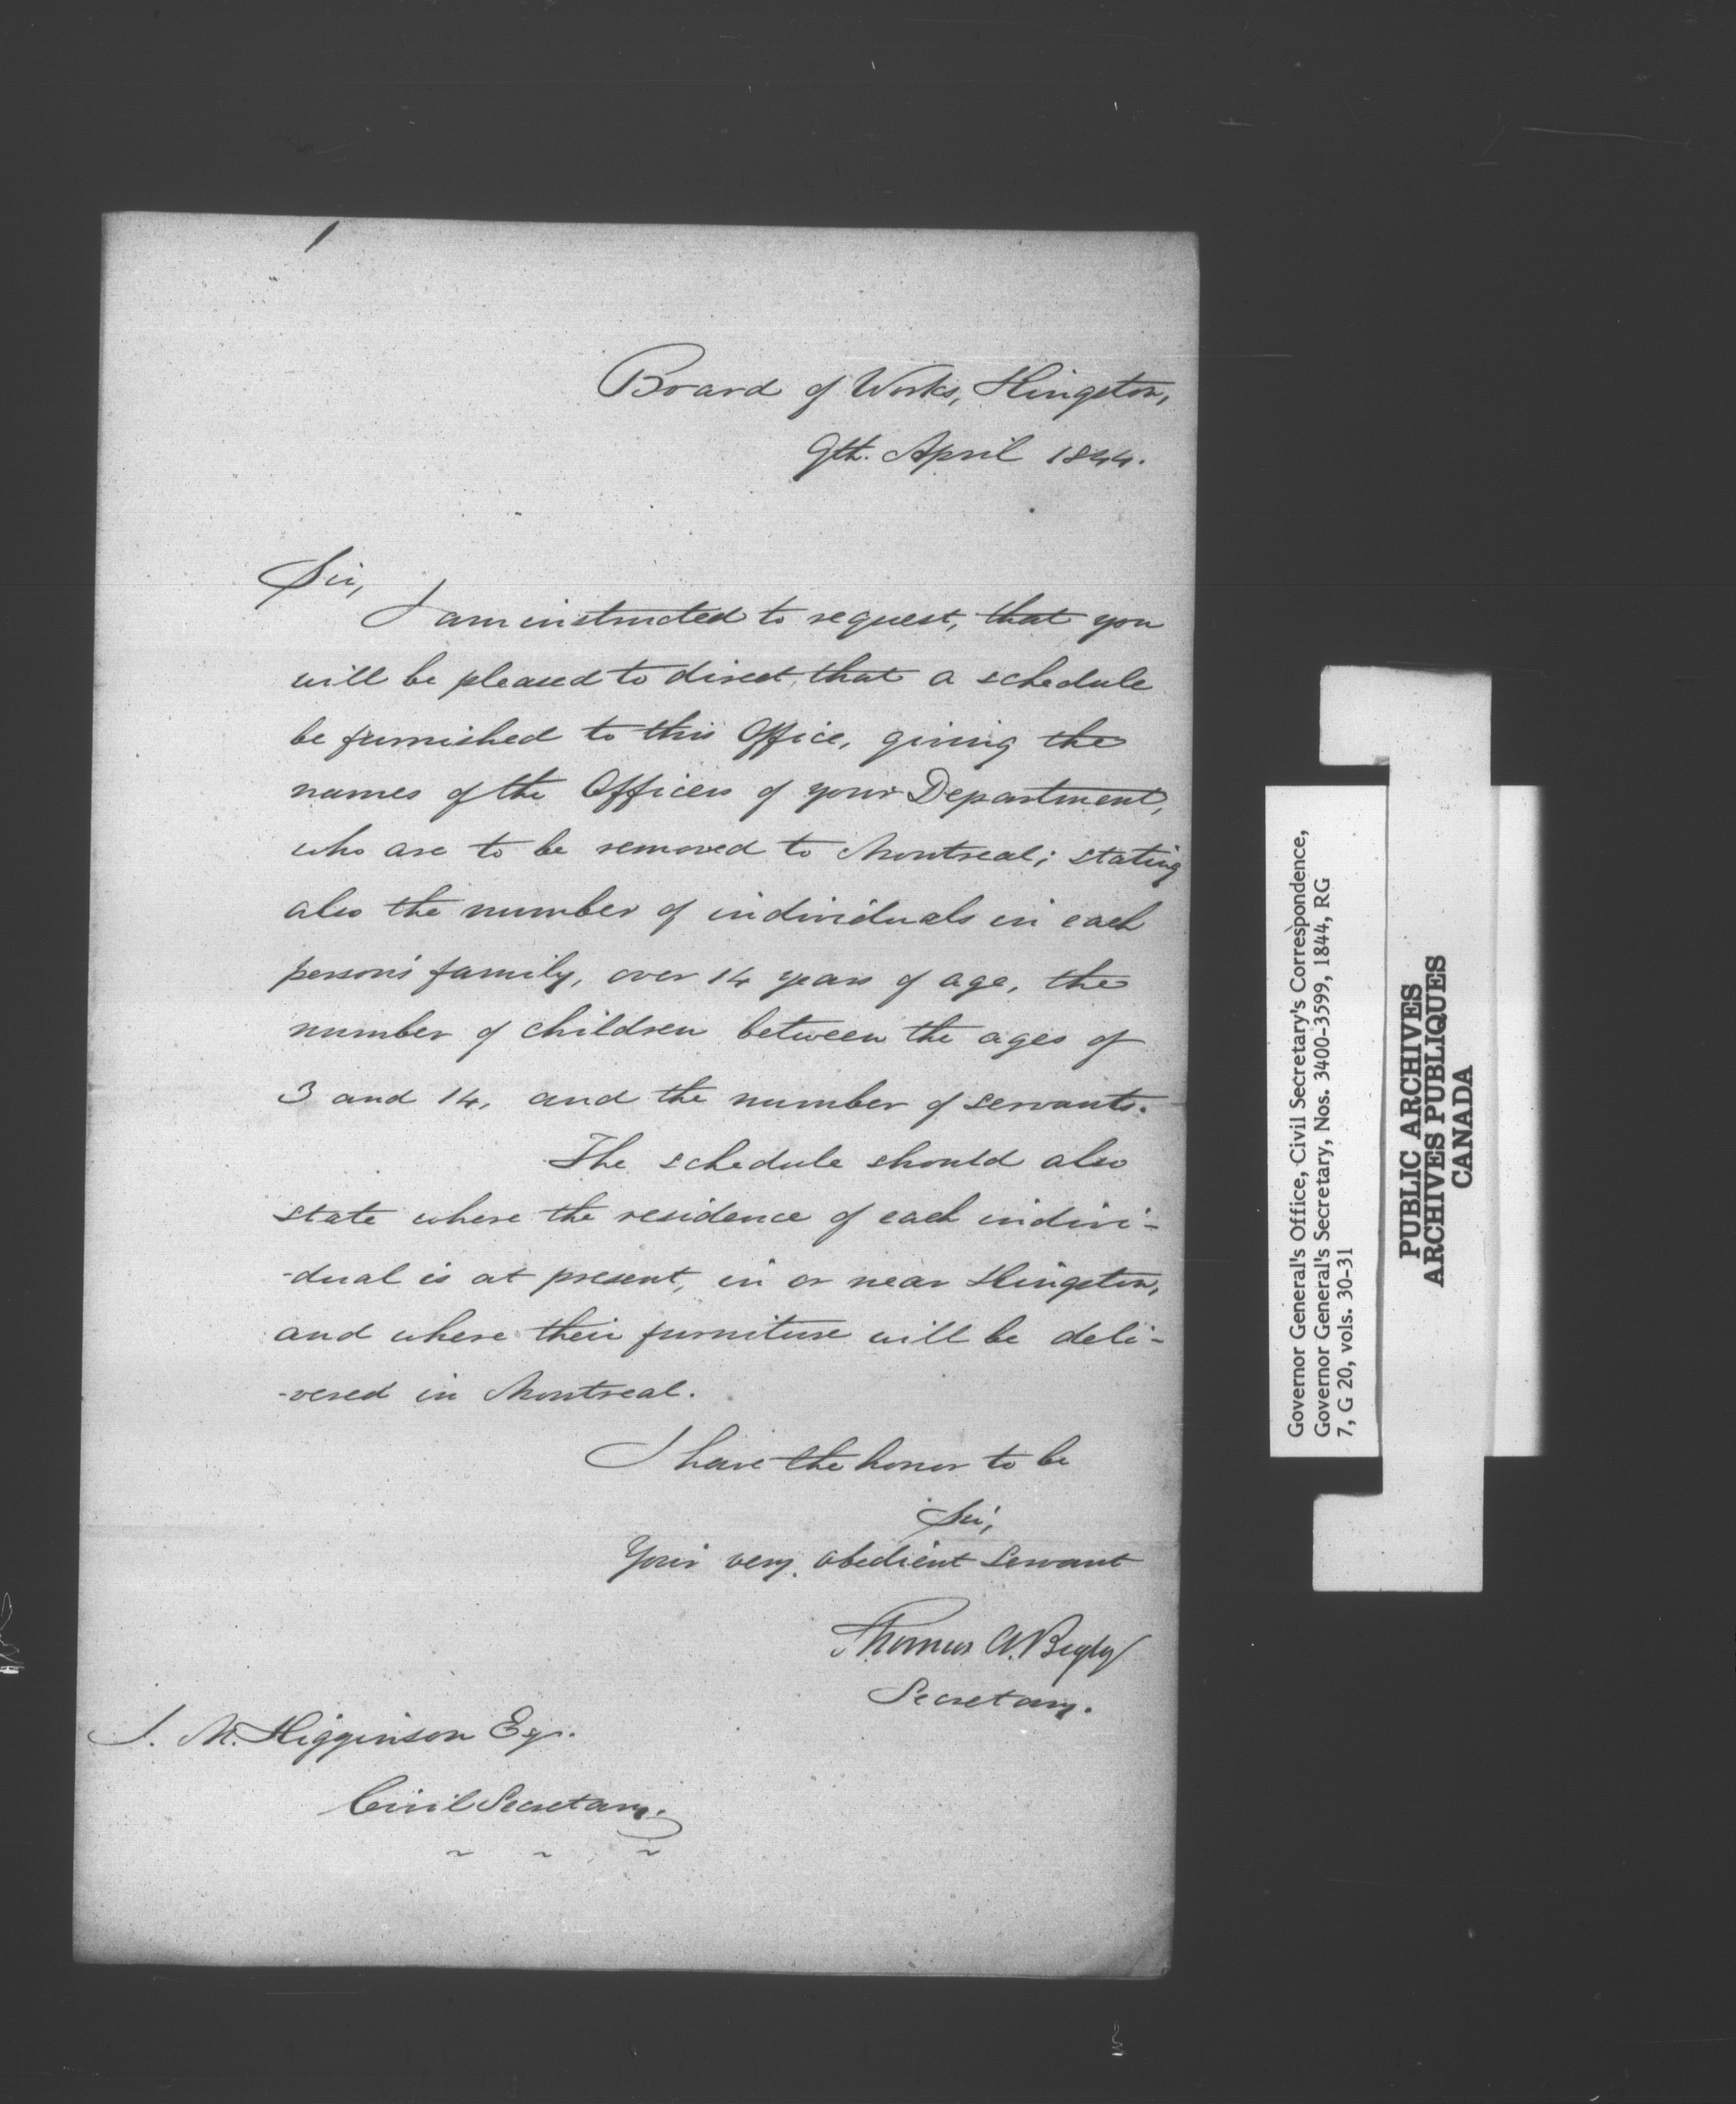 Board of Works, Kingston,
9th. April 1844.
Sir,
I am instructed to request, that you
will be pleased to direct, that a schedule
be furnished to this Office, giving the
names of the Officers of your Department,
who are to be removed to Montreal; stating
also the number of individuals in each
person's family, over 14 years of age, the
number of children between the ages of
3 and 14, and the number of servants.
The schedule should also
state where the residence of each indivi-
-dual is at present, in or near Kingston,
and where their furniture will be deli-
-vered in Montreal.
I have the honor to be
Sir,
Your very obedient Servant
Thomas A. Begly
Secretary.
J. M. Higginson Esqr.
Civil Secretary.
Governor General's Office, Civil Secretary's Correspondence,
Governor General's Secretary, Nos. 3400-3599, 1844, RG
7, G 20, vols. 30-31
PUBLIC ARCHIVES
ARCHIVES PUBLIQUES
CANADA